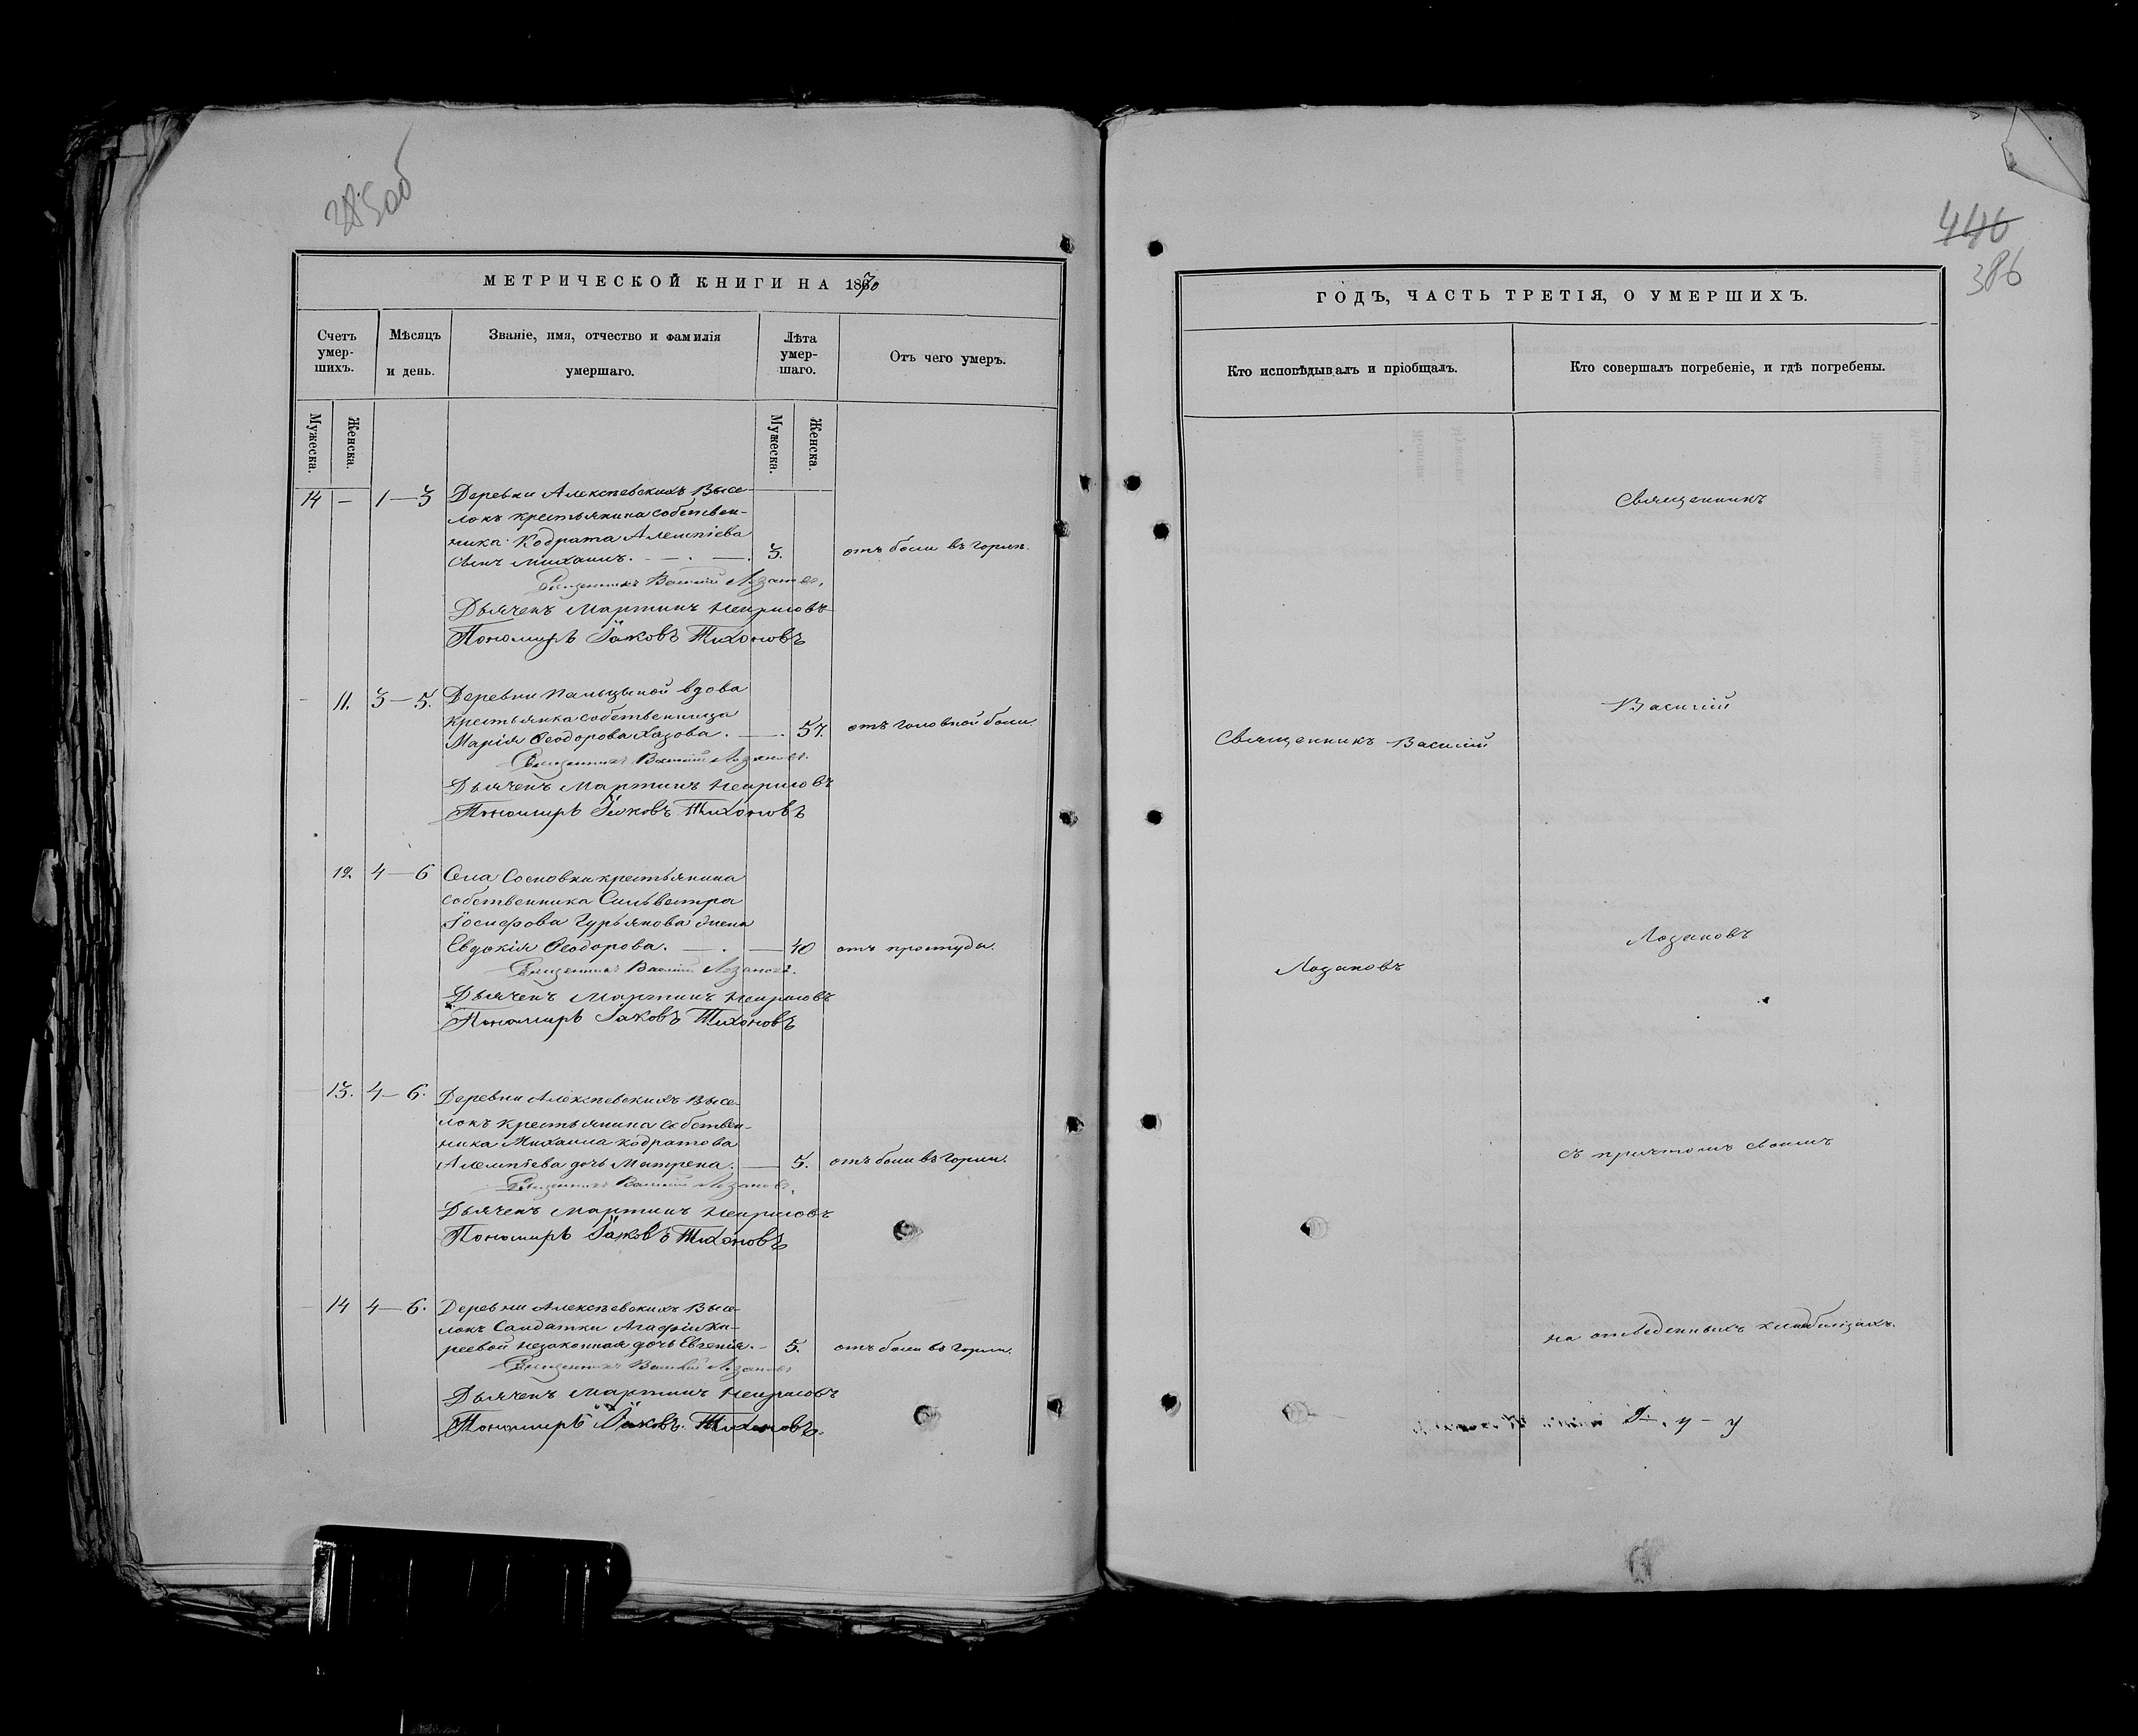 385об
МЕТРИЧЕСКОЙ КНИГИ НА 1870
Счетъ умер-
шихъ.
Мѣсяцъ
и день.
Званіе, имя, отчество и фамилія
умершаго.
Лѣта
умер-
шаго.
Отъ чего умеръ.
Мужеска.
Женска.
Мужеска.
Женска.
14 — 1—3 Деревни Алексѣевскихъ Высе-
локъ крестьянина собствен-
ника Кодрата Алемпіева
сынъ Михаилъ. 3. отъ боли въ горлѣ.
Священникъ Василій Лозановъ.
Дьячекъ Мартинъ
Пономарь Іаковъ Тихоновъ
11. 3—5. Деревни вдова
крестьянка собственница
Марія Ѳеодорова Хазова. 57. отъ головной боли.
Священникъ Василій Лозановъ.
Дьячекъ Мартинъ
Пономарь Іаковъ Тихоновъ
12. 4—6 Села Сосновки крестьянина
собственника Сильвестра
Іосифова Гурьянова жена
Евдокія Ѳеодорова. 40 отъ простуды.
Священникъ Василій Лозановъ.
Дьячекъ Мартинъ
Пономарь Іаковъ Тихоновъ
13. 4—6. Деревни Алексѣевскихъ Высе-
локъ крестьянина собствен-
ника Михаила Кодратова
Алемпіева дочь Матрена. 5. отъ боли въ горли.
Священникъ Василій Лозановъ.
Дьячекъ Мартинъ
Пономарь Іаковъ Тихоновъ
14 4—6. Деревни Алексѣевскихъ Высе-
локъ Солдатки Агафіи Ка-
реевой незаконная дочь Евгенія. 5. отъ боли въ горли.
Священникъ Василій Лозановъ
Дьячекъ Мартинъ
Пономарь Іаковъ Тихоновъ.
446
386
ГОДЪ, ЧАСТЬ ТРЕТІЯ, О УМЕРШИХЪ.
Кто исповѣдывалъ и пріобщалъ.
Кто совершалъ погребеніе, и гдѣ погребены.
Священникъ
Василій
Священникъ Василій
Лозановъ
Лозановъ
съ причтомъ своимъ
на отведенныхъ кладбищахъ.